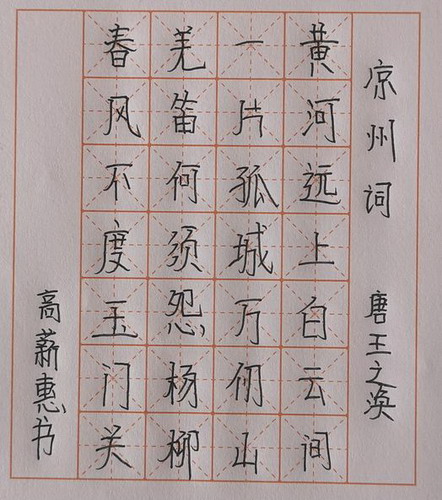 凉州词 唐王之涣
黄河远上白云间
一片孤城万仞山
羌笛何须怨杨柳
春风不度玉门关
高薪惠书